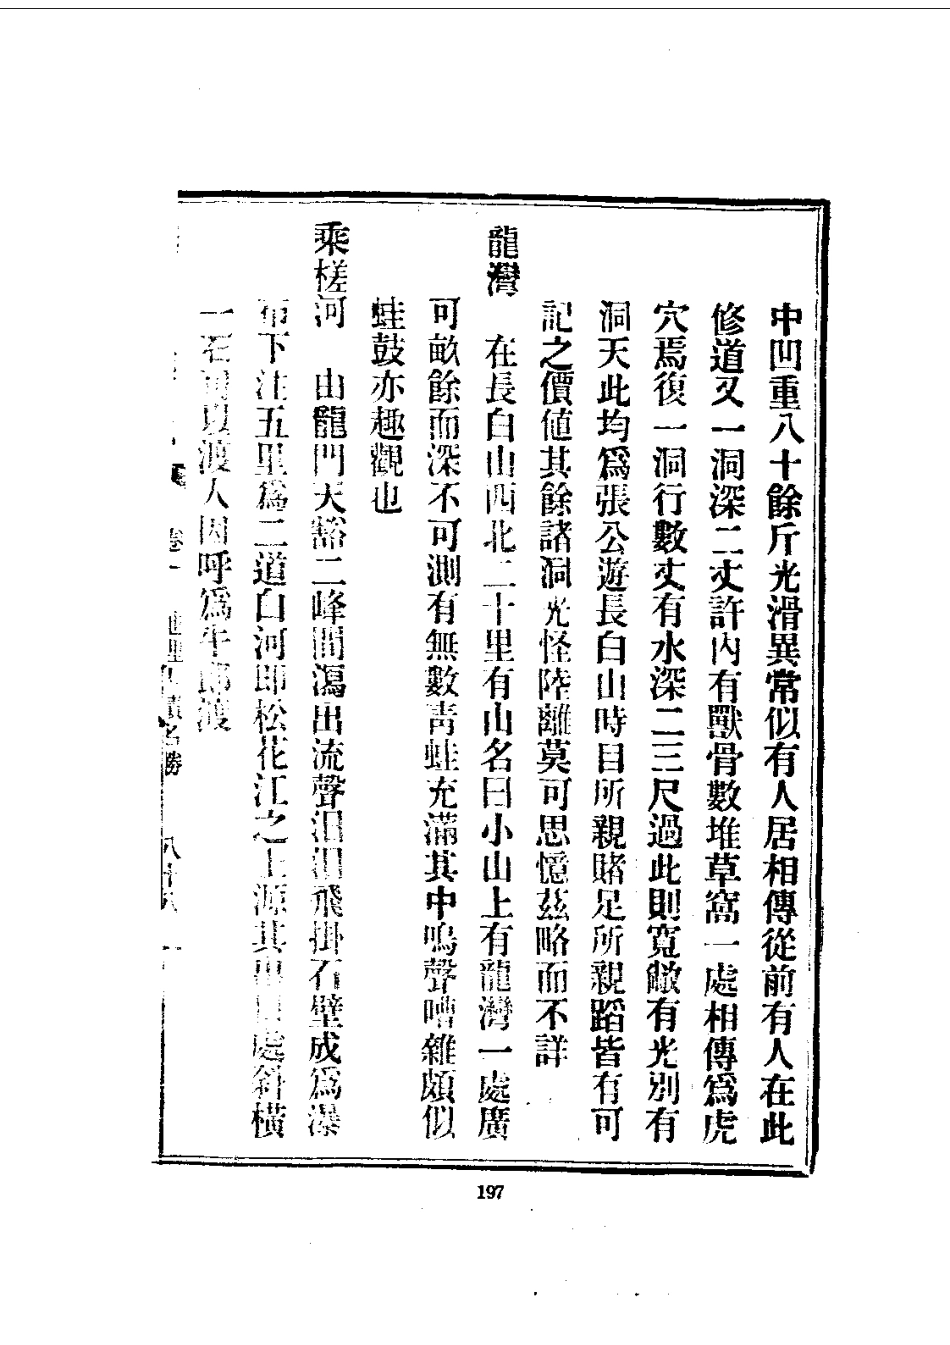 中凹重八十餘斤光滑異常似有人居相傳從前有人在此
修道又一洞深二丈許內有獸骨數堆草窩一處相傳爲虎
穴焉復一洞行數丈有水深二三尺過此則寬敞有光別有
洞天此均爲張公遊長白山時目所親睹足所親蹈皆有可
記之價値其餘諸洞光怪陸離莫可思憶茲略而不詳
龍灣　在長白山西北二十里有山名曰小山上有龍灣一處廣
可畝餘而深不可測有無數靑蛙充滿其中鳴聲嘈雜頗似
蛙鼓亦趣觀也
乘槎河　由龍門天豁二峰間瀉出流聲汨汨飛掛石壁成爲瀑
布下注五里爲二道白河即松花江之上源其出口處斜橫
一石可以渡人因呼爲牛郎渡
卷一　地理　蹟名勝
197